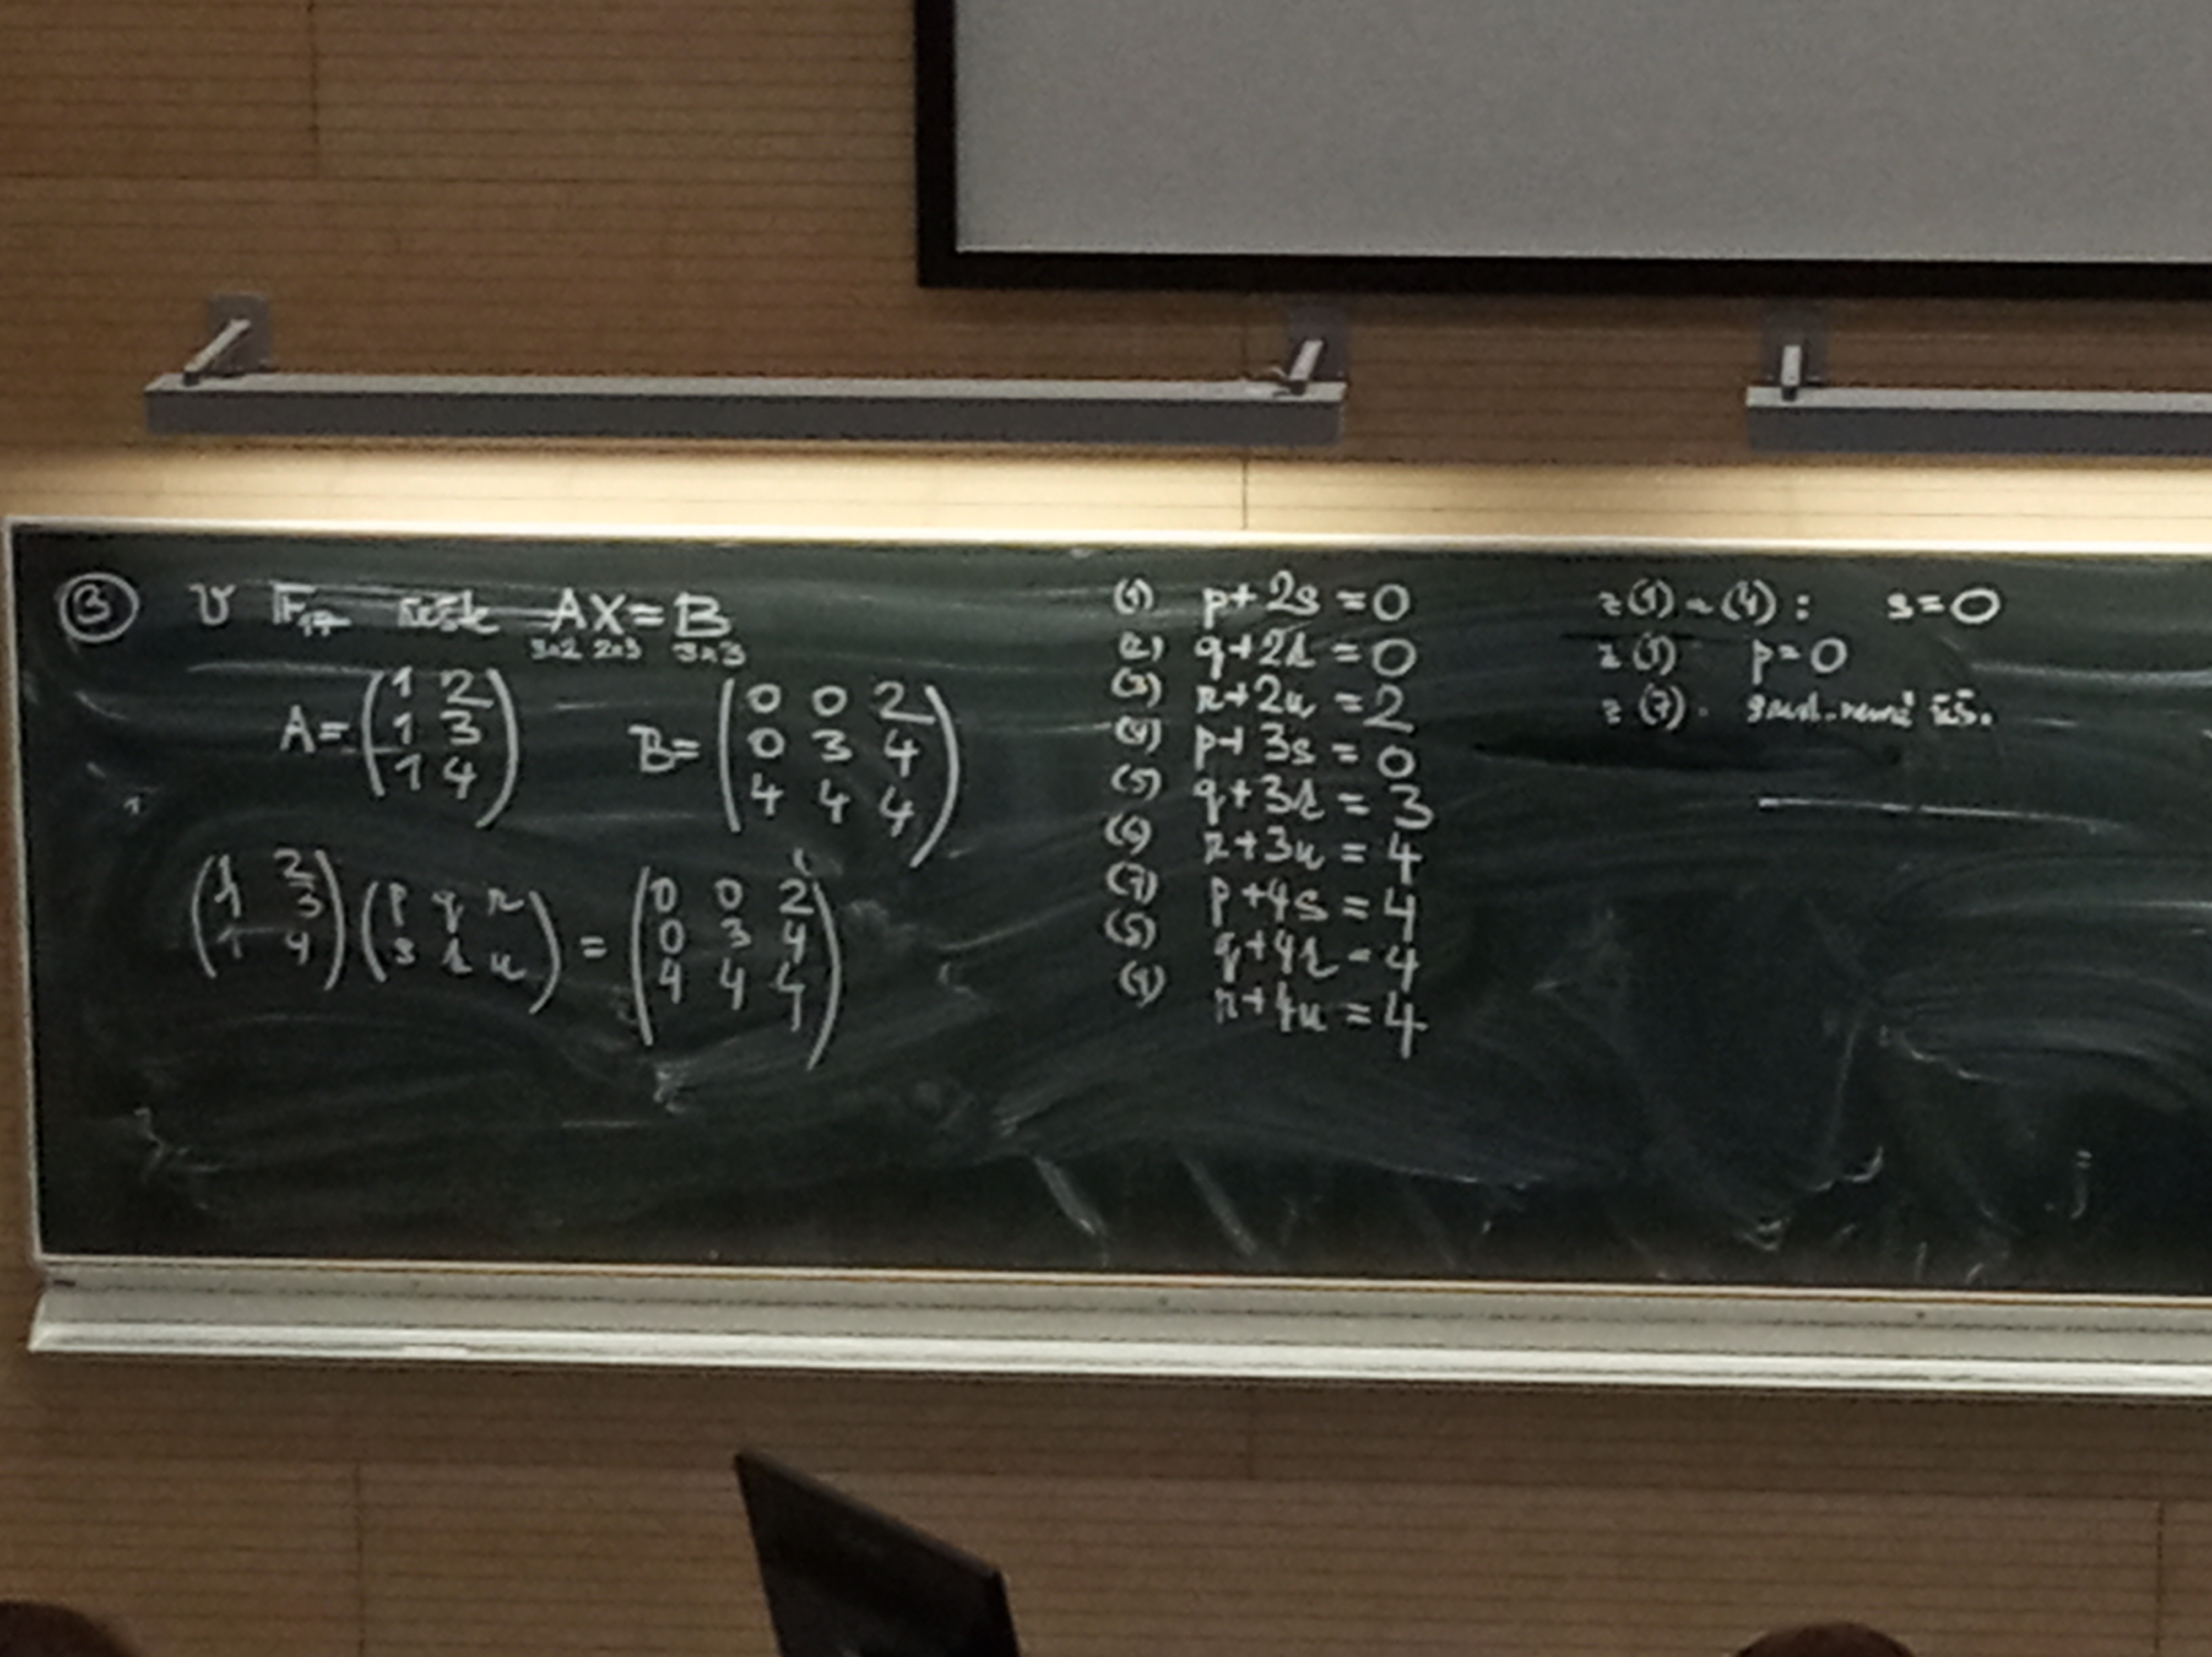 ③ V F₁₇ řešte AX=B
3×2 2×3 3×3
A= (1 2
1 3
1 4) B= (0 0 2
0 3 4
4 4 4)
(1 2
1 3
1 4) (p q r
s t u) = (0 0 2
0 3 4
4 4 4)
(1) p+2s=0
(2) q+2t=0
(3) r+2u=2
(4) p+3s=0
(5) q+3t=3
(6) r+3u=4
(7) p+4s=4
(8) q+4t=4
(9) r+4u=4
z (1) a (4): s=0
z (1) p=0
z (7). soust. nemá řeš.